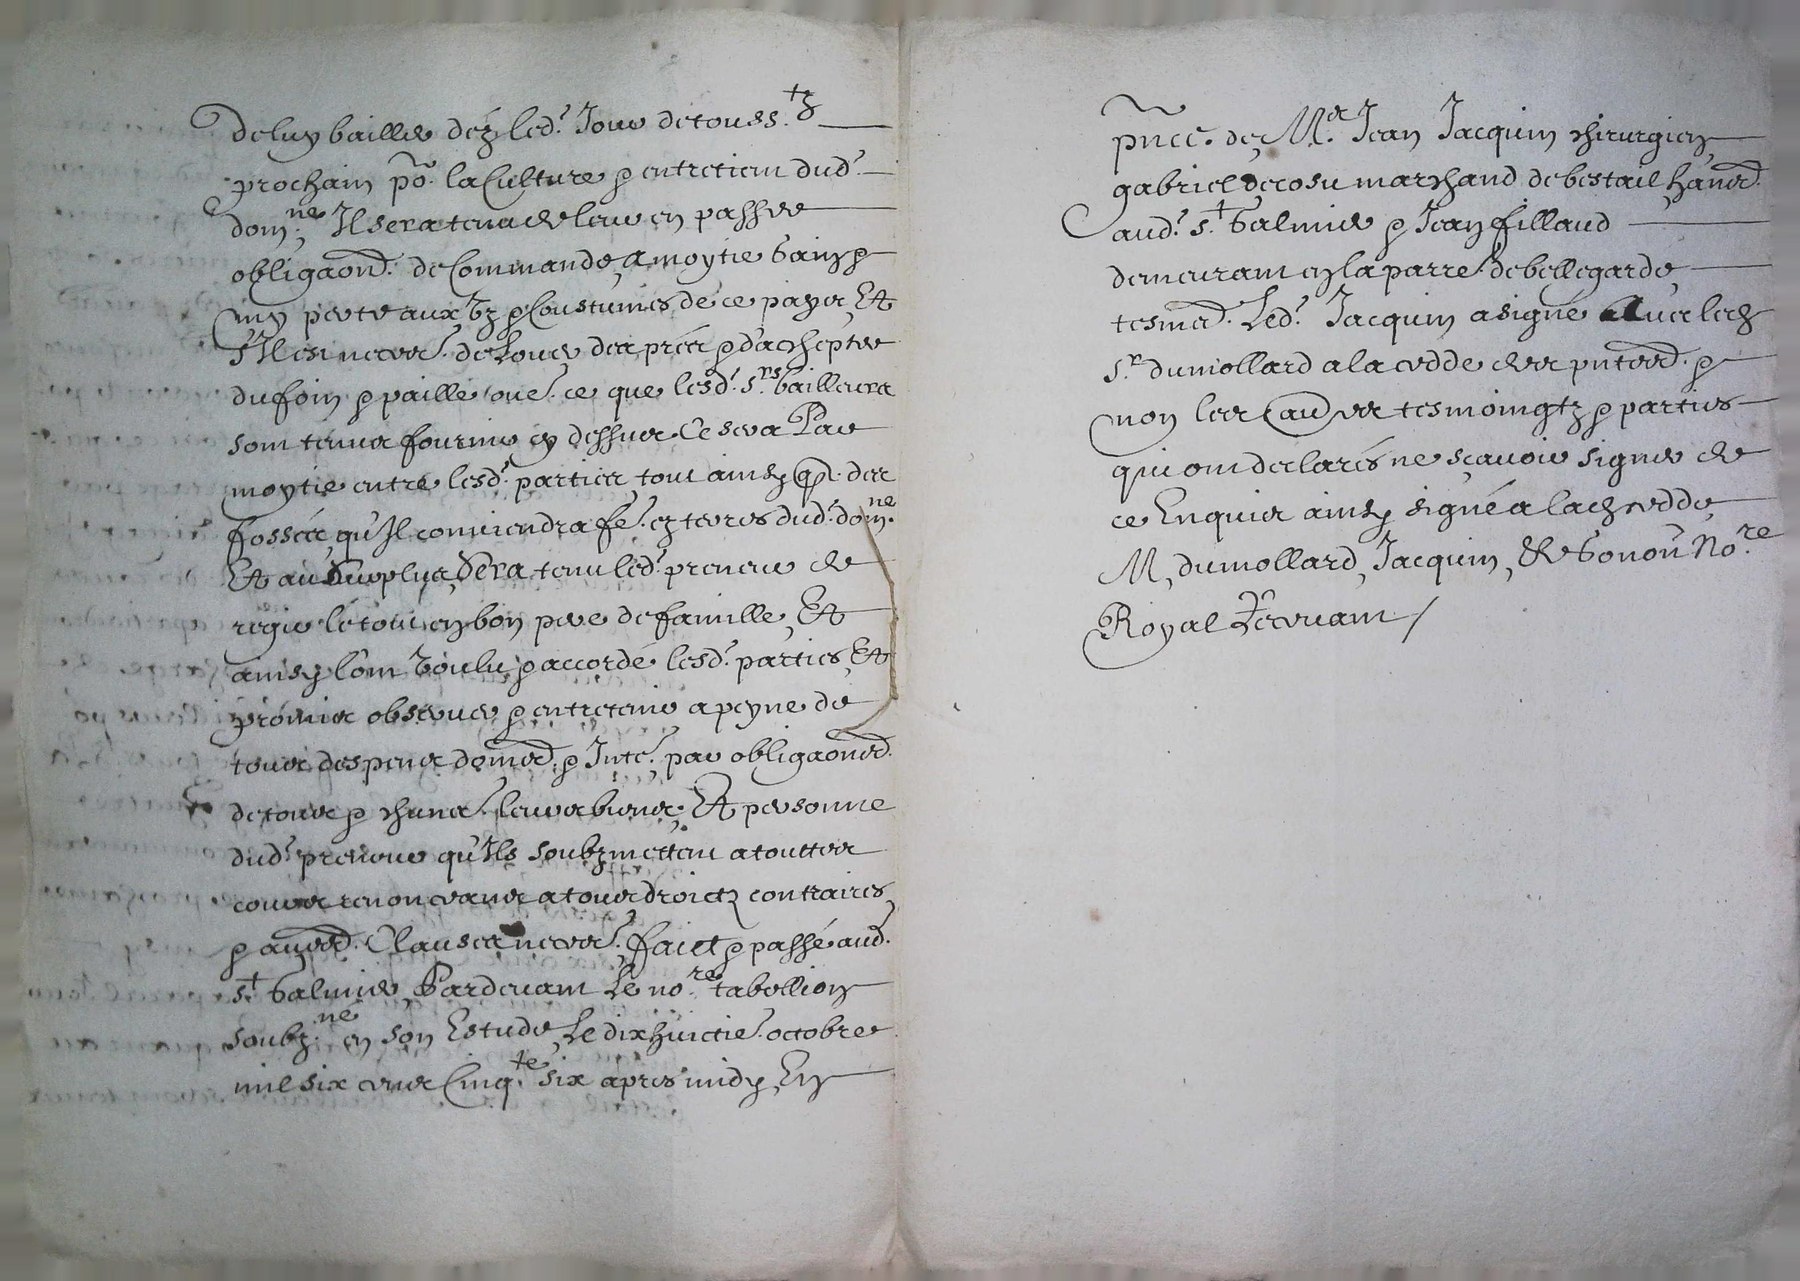 de luy bailler dez led.^t Jour de touss.^tz
prochain po.^r la Culture & entretien dud.^t
dom.^ne Il sera tenu et leur en passer
obligaon.^s de Commande a moytie gain &
my perte aux us & Coustumes de ce pays Et
s'Il est necess.^e de Louer des prés & d'achepter
du foin & paille oud.^t ce que lesd.^t s.^rs bailleurs
sont tenus fournir cy dessus Ce sera Par
moytie entre lesd.^t parties tout ainsy q. des
fossés qu'Il conviendra fe.^e ez terres dud.^t dom.^ne
Et au surplus Sera tenu led.^t preneur de
regir le tout en bon pere de famille, Et
ainsy l'ont voulu & accordé lesd.^t parties Et
promis observer & entretenir a peyne de
tous despens dom.^es & Inte.^s par obligaon.^s
de tous & chuns.^s leurs biens, Et personne
dud.^t preneur qu'Ils soubzmettent a touttes
cours renonceant a tous droictz contraires
& au.^es Clauses necess.^es faict & passé aud.^t
s.^t Galmier Pardevant Le no.^re tabellion
soubz.^ne en son Estude Le dixhuictie.^e octobre
mil six cens Cinq.^te six apres midy, En
pnce. de M.^e Jean Jacquin chirurgien
gabriel decosu marchand de bestail hans.
aud.^t s.^t Galmier & Jean fillaud
demeurant en la parre. de bellegarde
tesmes. Led.^t Jacquin a signé avec led.
s.^r dumollard a la cedde des pntes. &
non les au.^es tesmoingtz & parties
qui ont declarés ne sçavoir signer de
ce Enquis ainsy signé a lad. cedde
M, dumollard, Jacquin, Et Gonon No.^re
Royal Recevant /